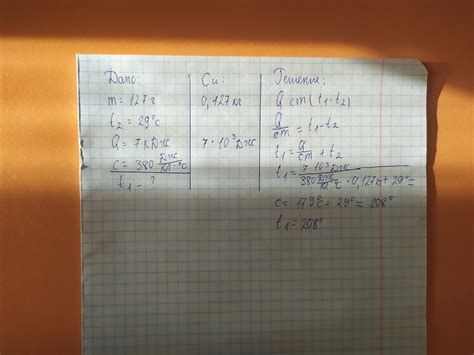 Дано:
m = 127 г
t₂ = 29°C
Q = 7 кДж
c = 380 Дж/кг·°C
t₁ - ?
Си:
0,127 кг
7 · 10³ Дж
Решение:
Q cm (t₁ - t₂)
Q/cm = t₁ - t₂
t₁ = Q/cm + t₂
t₁ = 7·10³Дж / 380 Дж/кг°C · 0,127кг + 29° =
c = 179°C + 29° = 208°
t₁ = 208°